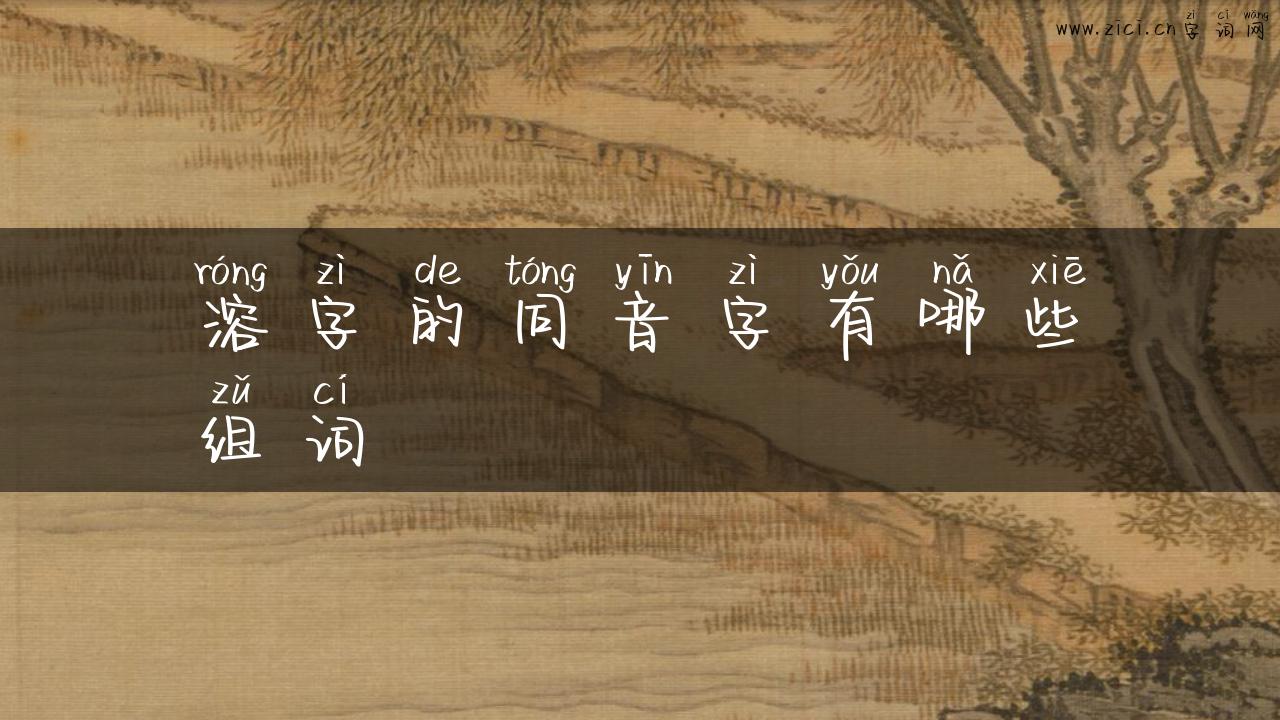 zì cí wǎng
www.zici.cn 字 词 网
róng zì de tóng yīn zì yǒu nǎ xiē
溶 字 的 同 音 字 有 哪 些
zǔ cí
组 词